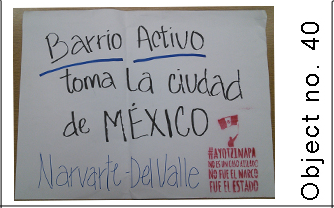 Barrio Activo
toma La ciudad
de MÉXICO
Narvarte-Del Valle
#AYOTZINAPA
NO ES UN CASO AISLADO
NO FUE EL NARCO
FUE EL ESTADO
Object no. 40